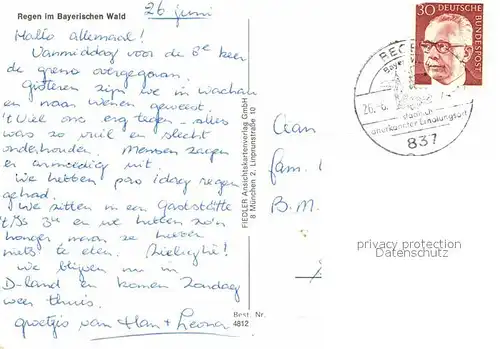 Regen im Bayerischen Wald
26 juni
Hallo allemaal!
Vanmiddag voor de 8e keer
de grens overgegaan.
Gisteren zijn we in Wachau
en naar Wenen geweest.
't Viel ons erg tegen - alles
was zo vuil en slecht
onderhouden. Mensen zagen
er armoedig uit.
We hebben pas 1 dag regen
gehad.
We zitten in een Gaststätte
't is 3u en we hebben zo'n
honger maar ze hebben
niets te eten. Zielighe!
We blijven nu in
D-land en komen Zondag
weer thuis.
groetjes van Han + Leona
FIEDLER Ansichtskartenverlag GmbH
8 München 2, Linprunstraße 10
Best. Nr.
4812
30 DEUTSCHE
BUNDESPOST
REGEN
26.-6.
staatlich
anerkannter Erholungsort
837
Aan
fam.
B.M.
privacy protection
Datenschutz